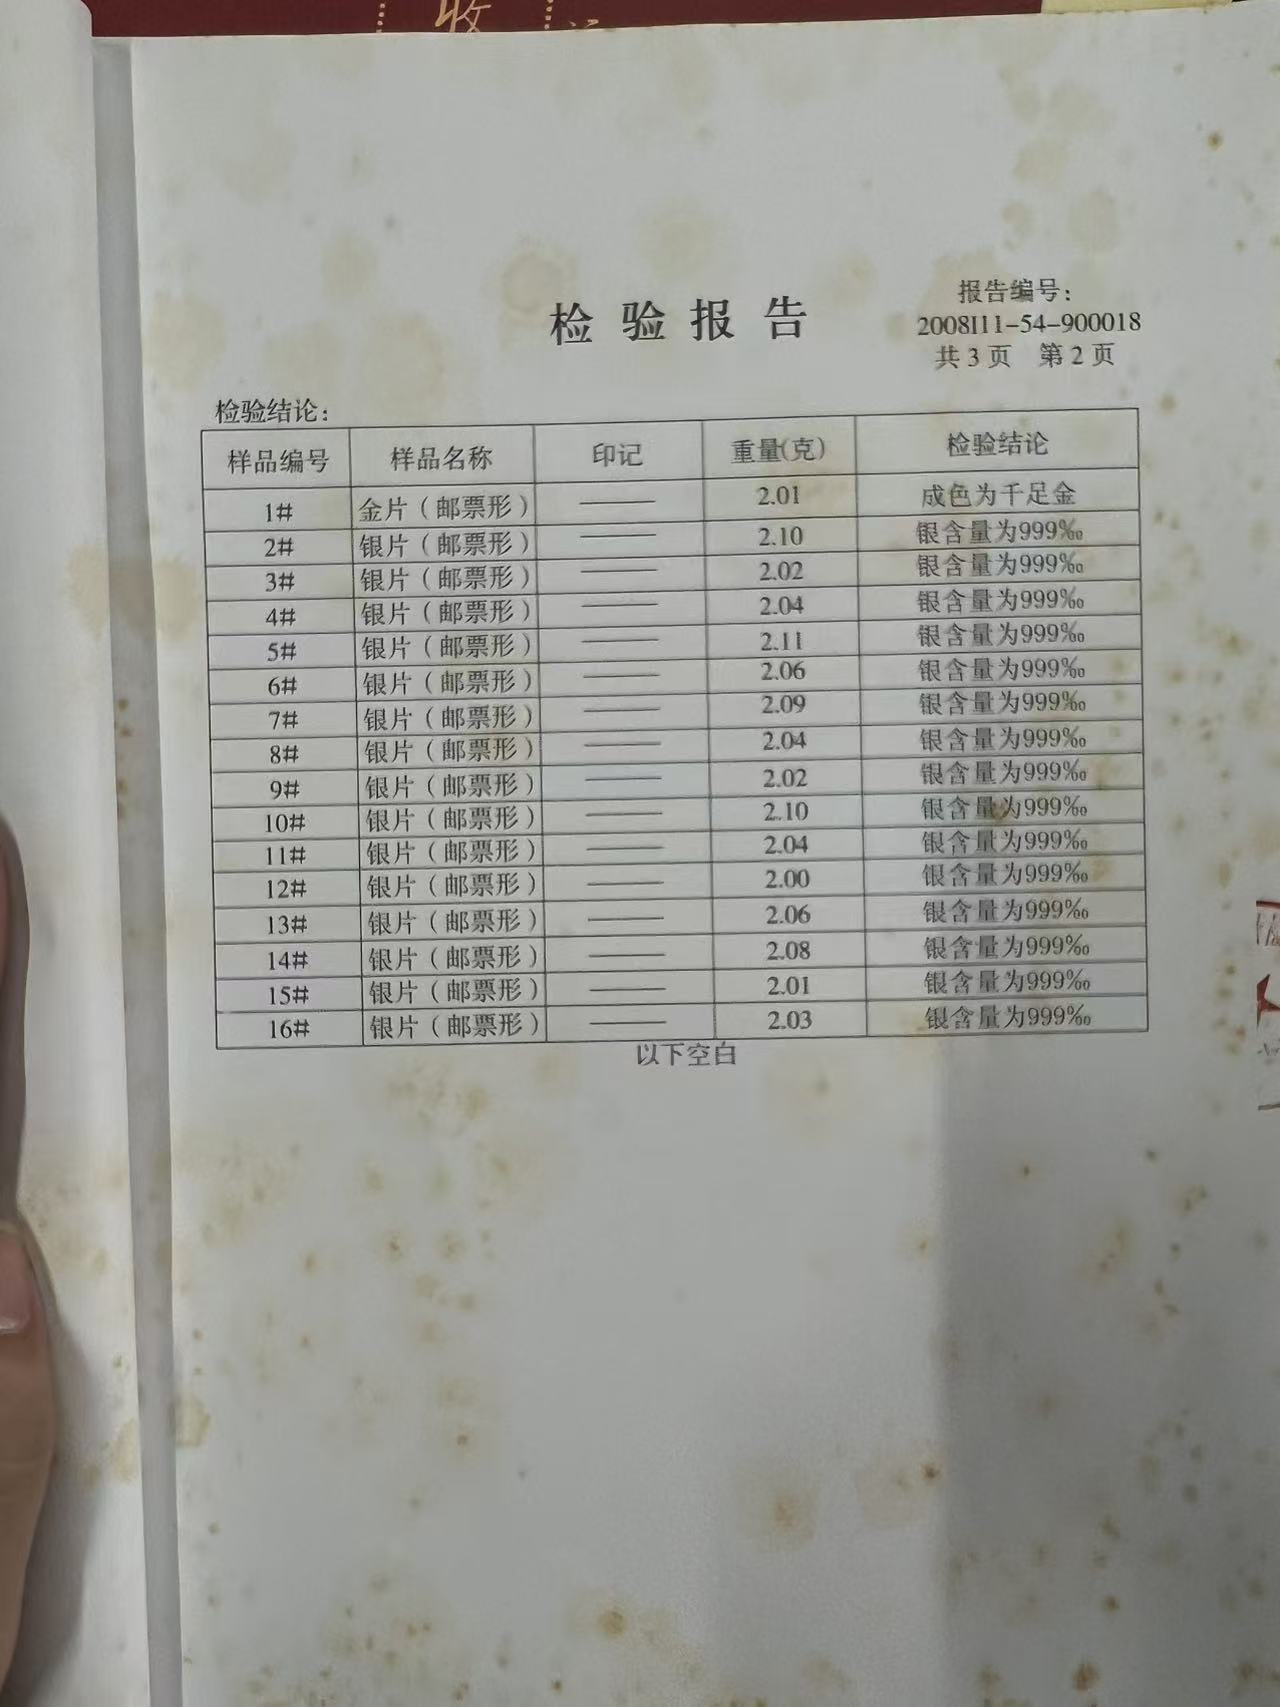 收
检验报告
报告编号：
2008I11-54-900018
共3页 第2页
检验结论：
样品编号 样品名称 印记 重量(克) 检验结论
1# 金片（邮票形） —— 2.01 成色为千足金
2# 银片（邮票形） —— 2.10 银含量为999‰
3# 银片（邮票形） —— 2.02 银含量为999‰
4# 银片（邮票形） —— 2.04 银含量为999‰
5# 银片（邮票形） —— 2.11 银含量为999‰
6# 银片（邮票形） —— 2.06 银含量为999‰
7# 银片（邮票形） —— 2.09 银含量为999‰
8# 银片（邮票形） —— 2.04 银含量为999‰
9# 银片（邮票形） —— 2.02 银含量为999‰
10# 银片（邮票形） —— 2.10 银含量为999‰
11# 银片（邮票形） —— 2.04 银含量为999‰
12# 银片（邮票形） —— 2.00 银含量为999‰
13# 银片（邮票形） —— 2.06 银含量为999‰
14# 银片（邮票形） —— 2.08 银含量为999‰
15# 银片（邮票形） —— 2.01 银含量为999‰
16# 银片（邮票形） —— 2.03 银含量为999‰
以下空白